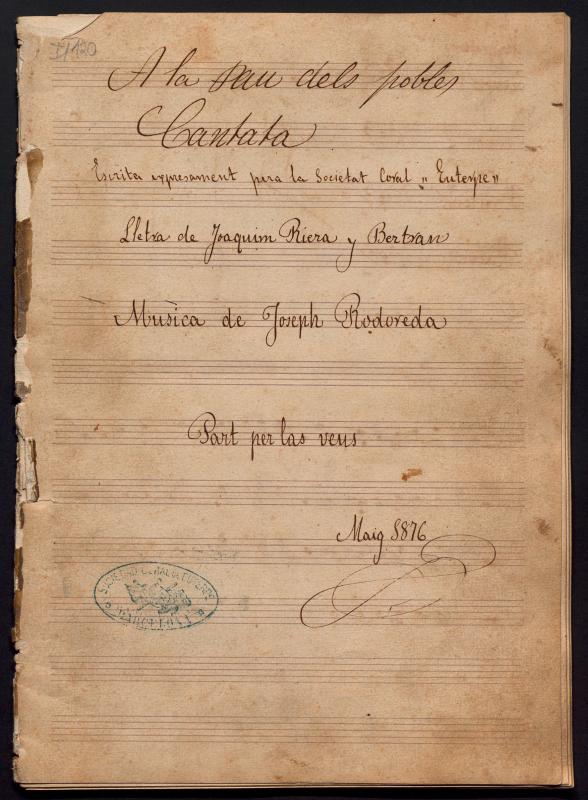 I/120
A la Pau dels pobles
Cantata
Escrita expresament pera la Societat Coral „Euterpe"
Lletra de Joaquim Riera y Bertran
Música de Joseph Rodoreda
Part per las veus
Maig 1876
SOCIEDAD CORAL DE EUTERPE
BARCELONA